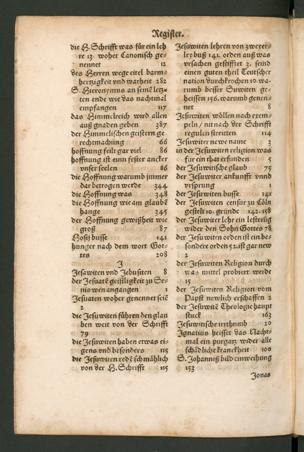 Register.
die H. Schrifft was für ein leh
re 13 woher Canonisch ge-
nennet 12
des Herren wege eitel barm-
hertzigkeit vnd warheit 282
S. Hieronymus an seine letz-
ten ende wie das nachtmal
empfangen 117
das Himmelreich wird allen
auß gnaden geben 387
der Himmelischen geistern ge-
rechtmachung 66
hoffnung feilt gar viel 86
hoffnung ist ein fester ancker
vnser seelen 86
die Hoffnung warumb jmmer
dar betrogen werde 344
die Hoffnung was 344
die Hoffnung wie am glaubē
hange 345
der Hoffnung gewißheit wie
groß 87
Hosij busse 141
hunger nach dem wort Got-
tes 208
J
Jesuwiten vnd Jebusiten 8
der Jesuatē geistligkeit zu Se-
nis wen angangen
Jesuaten woher genennet seiē
2
die Jesuwiten führen den glau
ben weit von der Schrifft
79
die Jesuwiten haben etwas ei-
gens vnd besonders 115
die Jesuwiten redē schmählich
von der H. Schrifft 115
Jesuwiten lehren von zweyer-
ley buß 141. orden auß was
vrsachen gestifftet 3. seind
einen guten theil Teutscher
nation durchkrochen 10. wa-
rumb besser Suwiten ge-
heissen 156. warumb genen-
net 8
Jesuwiten wöllen nach jrem
/ nit nach der Schrifft
regulen streiten 114
Jesuwiter newe name 3
die Jesuwiten in religion was
für ein that erfunden 5
der Jesuwitische glaub 75
der Jesuwiter ankunfft vnnd
vrsprung 1
der Jesuwiten busse 141
der Jesuwiten censur zu Cöln
gestelt 10. gerümbt 142. 158
der Jesuwiter lehr ein lesterūg
wider den Sohn Gottes 78
der Jesuwiten orden ist ein be-
sondere orden 52. ist gar new
2
der Jesuwiten Religion durch
was mittel probiert werde
15
der Jesuwiten Religion vom
Papst newlich erschaffen 2
der Jesuwitē Theologie haupt
stuck 163
Jesuwitische irrthumb 20
Ignatius heisset das Nacht-
mal ein purgatz wider alle
schädliche kranckheit 100
S. Johannis bild einweihung
153
Jonas